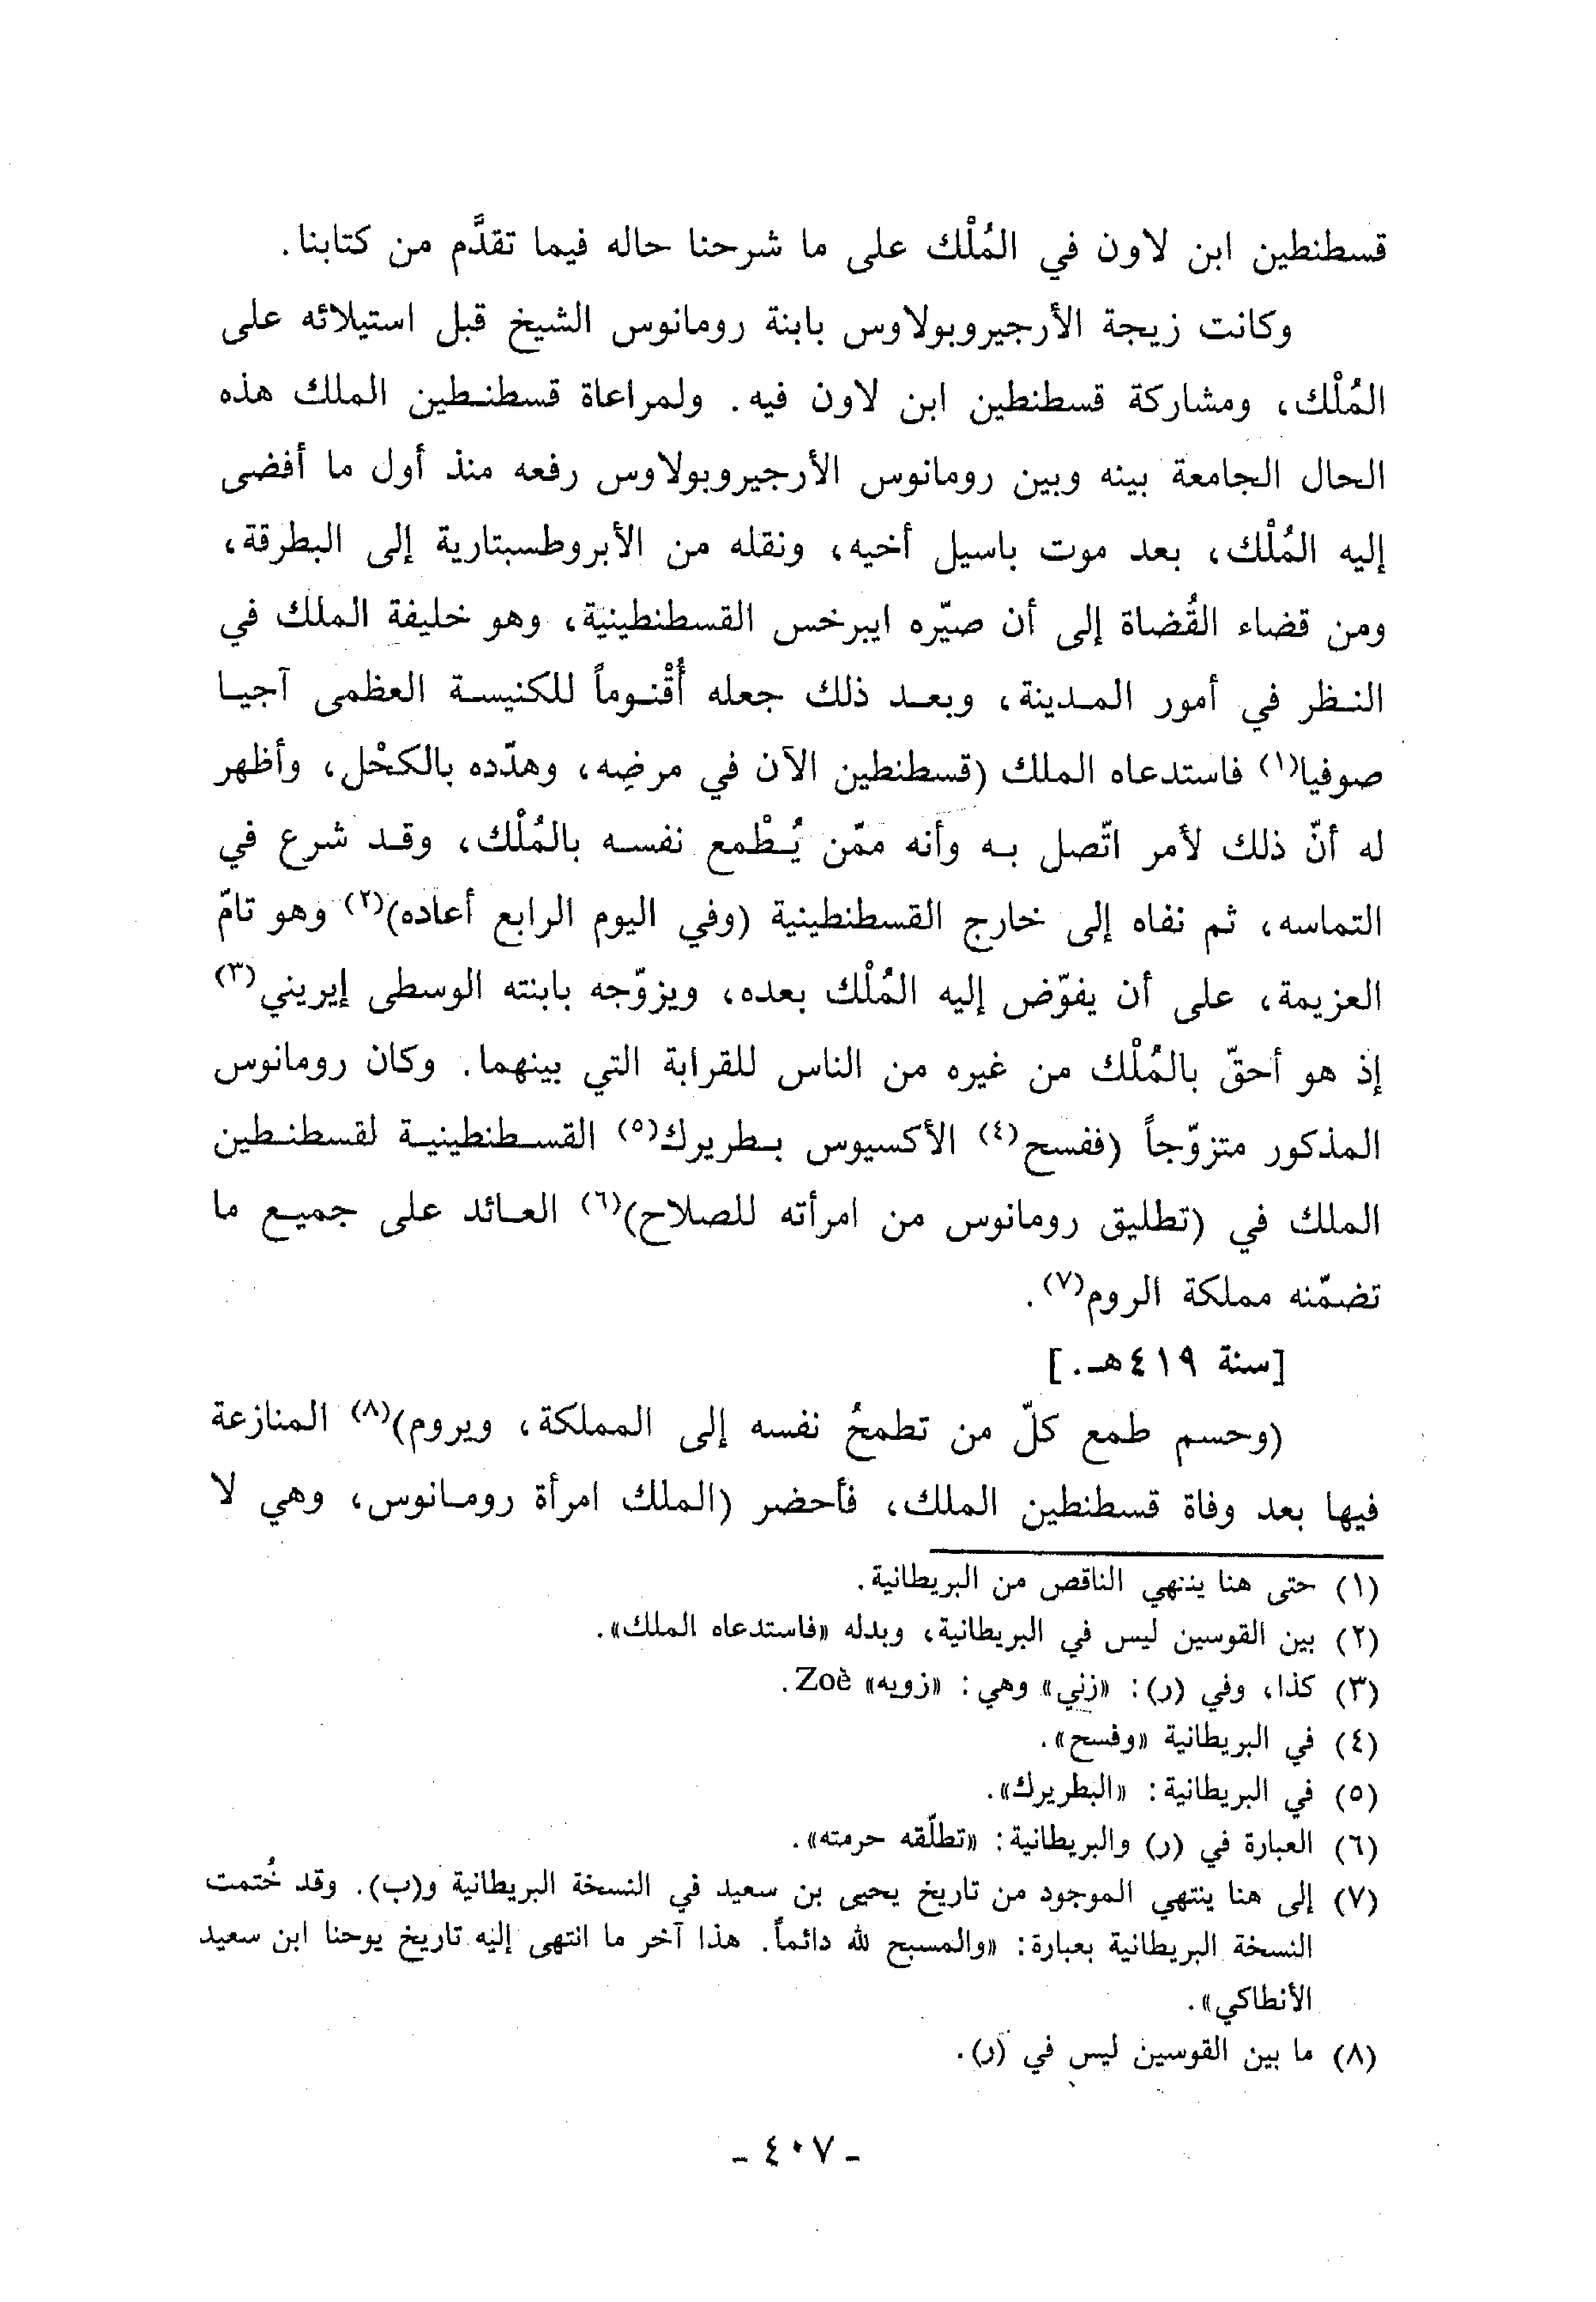 قسطنطين ابن لاون في المُلْك على ما شرحنا حاله فيما تقدَّم من كتابنا.
وكانت زيجة الأرجيروبولاوس بابنة رومانوس الشيخ قبل استيلائه على
المُلْك، ومشاركة قسطنطين ابن لاون فيه. ولمراعاة قسطنطين الملك هذه
الحال الجامعة بينه وبين رومانوس الأرجيروبولاوس رفعه منذ أول ما أفضى
إليه المُلْك، بعد موت باسيل أخيه، ونقله من الأبروطسبتارية إلى البطرقة،
ومن قضاء القُضاة إلى أن صيّره ايبرخس القسطنطينية، وهو خليفة الملك في
النظر في أمور المدينة، وبعد ذلك جعله أُقْنوماً للكنيسة العظمى آجيا
صوفيا(١) فاستدعاه الملك (قسطنطين الآن في مرضِه، وهدّده بالكحْل، وأظهر
له أنّ ذلك لأمر اتّصل به وأنه ممّن يُطْمع نفسه بالمُلْك، وقد شرع في
التماسه، ثم نفاه إلى خارج القسطنطينية (وفي اليوم الرابع أعاده)(٢) وهو تامّ
العزيمة، على أن يفوّض إليه المُلْك بعده، ويزوّجه بابنته الوسطى إيريني(٣)
إذ هو أحقّ بالمُلْك من غيره من الناس للقرابة التي بينهما. وكان رومانوس
المذكور متزوّجاً (ففسح(٤) الأكسيوس بطريرك(٥) القسطنطينية لقسطنطين
الملك في (تطليق رومانوس من امرأته للصلاح)(٦) العائد على جميع ما
تضمّنه مملكة الروم(٧).
[سنة ٤١٩هـ.]
(وحسم طمع كلّ من تطمحُ نفسه إلى المملكة، ويروم)(٨) المنازعة
فيها بعد وفاة قسطنطين الملك، فأحضر (الملك امرأة رومانوس، وهي لا
(١) حتى هنا ينتهي الناقص من البريطانية.
(٢) بين القوسين ليس في البريطانية، وبدله «فاستدعاه الملك».
(٣) كذا، وفي (ر): «زني» وهي: «زويه» Zoè.
(٤) في البريطانية «وفسح».
(٥) في البريطانية: «البطريرك».
(٦) العبارة في (ر) والبريطانية: «تطلّقه حرمته».
(٧) إلى هنا ينتهي الموجود من تاريخ يحيى بن سعيد في النسخة البريطانية و(ب). وقد خُتمت
النسخة البريطانية بعبارة: «والمسبح لله دائماً. هذا آخر ما انتهى إليه تاريخ يوحنا ابن سعيد
الأنطاكي».
(٨) ما بين القوسين ليس في (ر).
- ٤٠٧ -